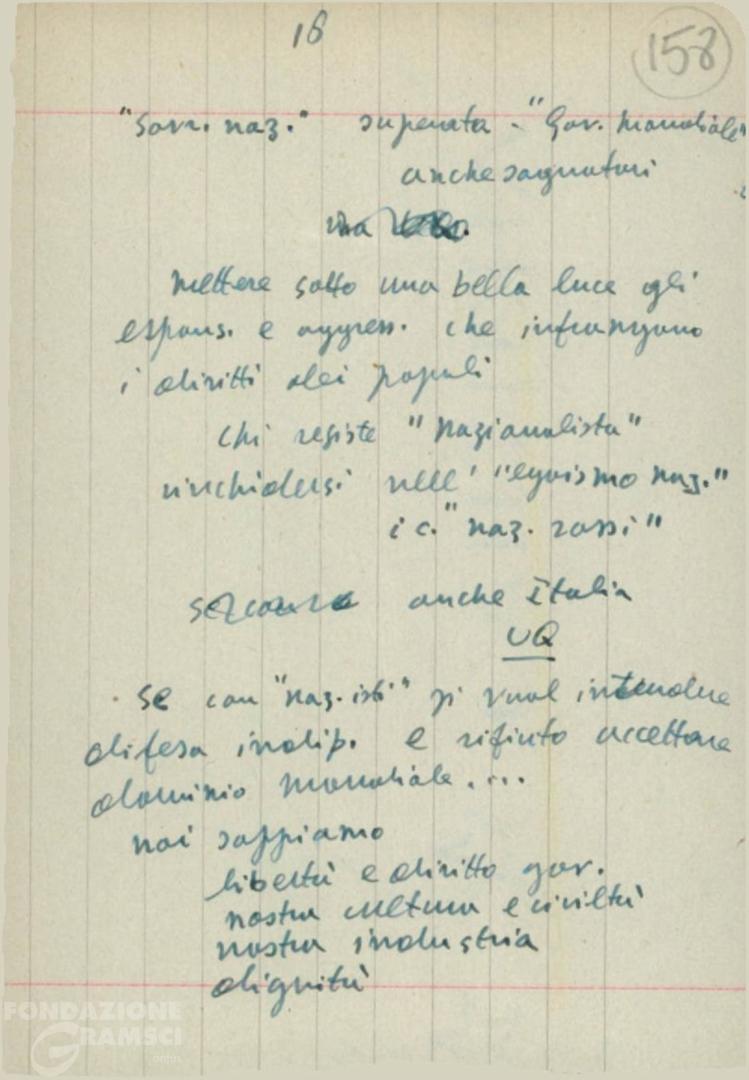 16
158
"Sovr. naz." superata - "Gov. mondiale"
anche sognatori
ma
mettere sotto una bella luce gli
espans. e aggress. che infrangono
i diritti dei popoli
chi resiste "nazionalista"
rinchidersi nell' "egoismo naz."
i c. "naz. rossi"
anche Italia
UQ
Se con "naz.isti" si vuol intendere
difesa indip. e rifiuto accettare
dominio mondiale....
noi sappiamo
libertà e diritto gov.
nostra cultura e civiltà
nostra industria
dignità
FONDAZIONE
GRAMSCI
onlus